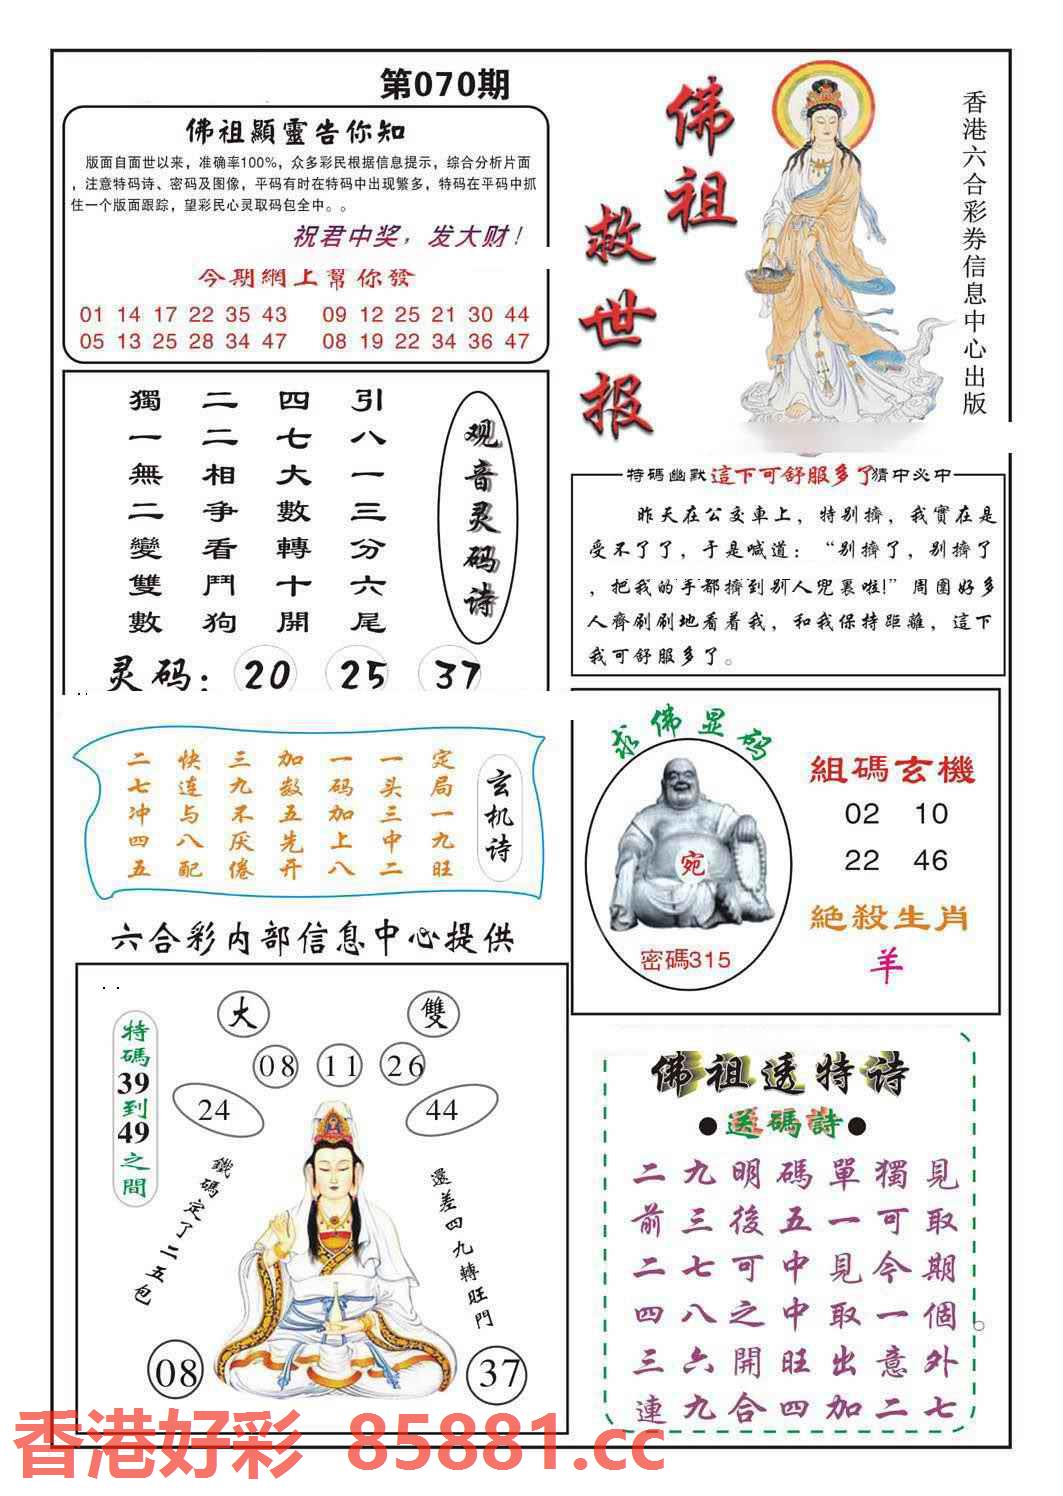 第070期
佛祖顯靈告你知
版面自面世以来，准确率100%，众多彩民根据信息提示，综合分析片面
，注意特码诗、密码及图像，平码有时在特码中出现繁多，特码在平码中抓
住一个版面跟踪，望彩民心灵取码包全中。。
祝君中奖，发大财！
今期網上幫你發
01 14 17 22 35 43 09 12 25 21 30 44
05 13 25 28 34 47 08 19 22 34 36 47
佛祖救世报
香港六合彩券信息中心出版
观音灵码诗
引八一三分六尾
四七大數轉十開
二二相争看鬥狗
獨一無二變雙數
灵码： 20 25 37
特碼幽默 這下可舒服多了 猜中必中
昨天在公交車上，特别擠，我實在是
受不了了，于是喊道：“别擠了，别擠了
，把我的手都擠到别人兜裏啦!”周圍好多
人齊刷刷地看着我，和我保持距離，這下
我可舒服多了。
玄机诗
定局一九旺
一头三中二
一码加上八
加数五先开
三九不厌倦
快连与八配
二七冲四五
求佛显码
宛
密碼315
組碼玄機
02 10
22 46
絕殺生肖
羊
六合彩内部信息中心提供
大 雙
08 11 26
24 44
特碼39到49之間
鐵碼定了二五包
還差四九轉旺門
08 37
佛祖透特诗
●送碼詩●
二九明碼單獨見
前三後五一可取
二七可中見今期
四八之中取一個
三六開旺出意外
連九合四加二七
香港好彩 85881.cc